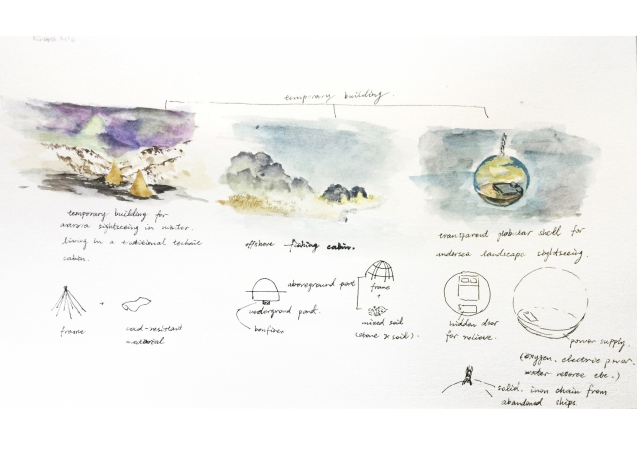 temporary building.
temporary building for
aurora sightseeing in winter.
living in a traditional technic
cabin.
offshore fishing cabin.
transparent globular shell for
undersea landscape sightseeing.
frame
+
cold-resistant
material
aboveground part
underground part.
bonfires
frame
+
mixed soil
(stone & soil).
hidden door
for relieve.
power supply.
(oxygen. electric power.
water reserve etc.)
solid. iron chain from
abandoned ships.